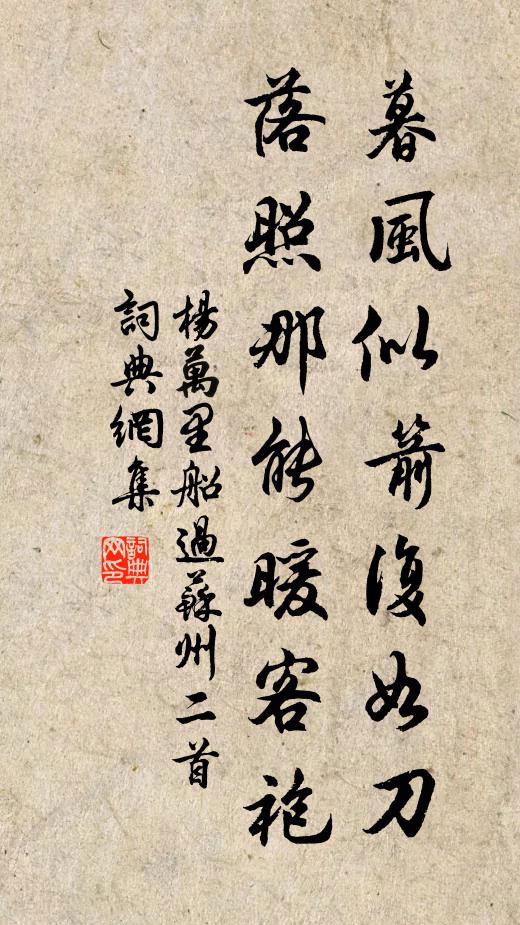 暮風似箭復如刀
落照那能暖客袍
楊萬里船過蘇州二首
詞典網集
詞典網印